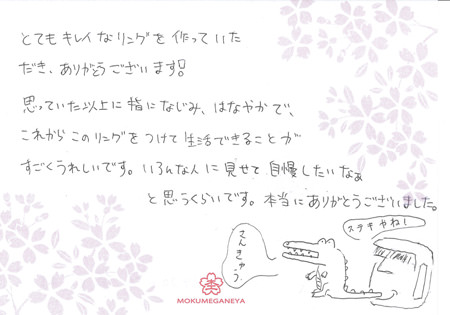 とてもキレイなリングを作っていた
だき、ありがとうございます!!
思っていた以上に指になじみ、はなやかで、
これからこのリングをつけて生活できることが
すごくうれしいです。いろんな人に見せて自慢したいなぁ
と思うくらいです。本当にありがとうございました。
ステキやね!
さんきゅう
MOKUMEGANEYA